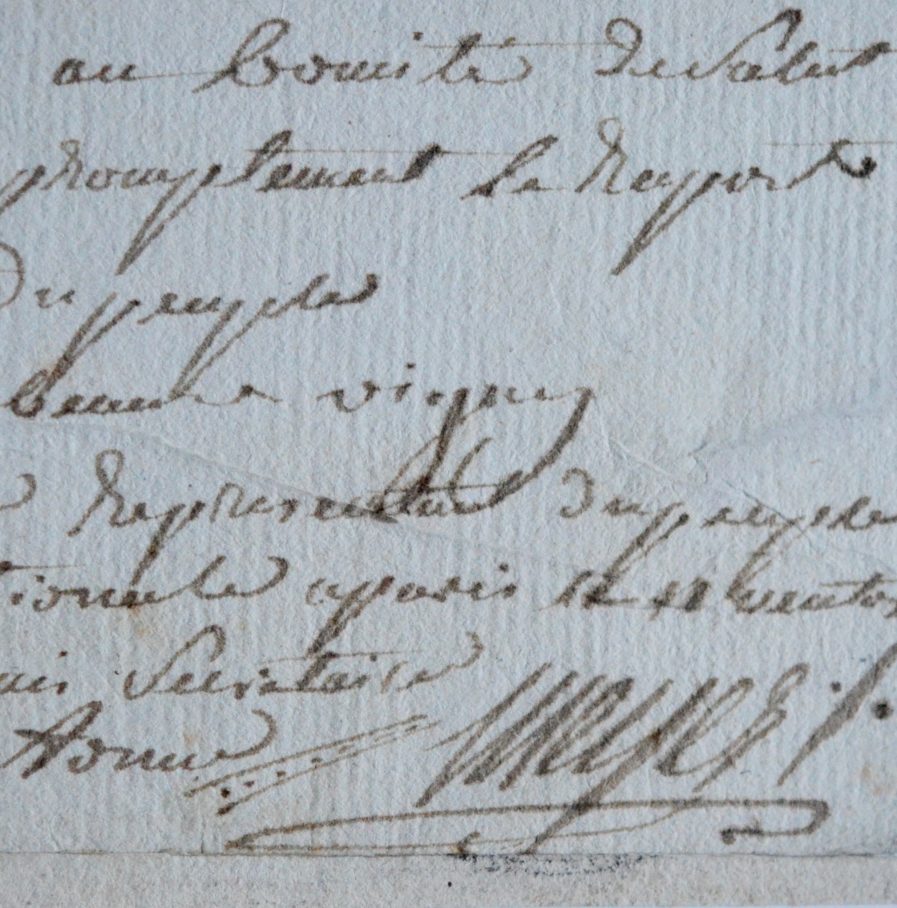 au Comité de Salut
promptement le raport
du peuple
beaud vigney
Représentant du peuple
tionale a paris le 11 ventos
Secretaire